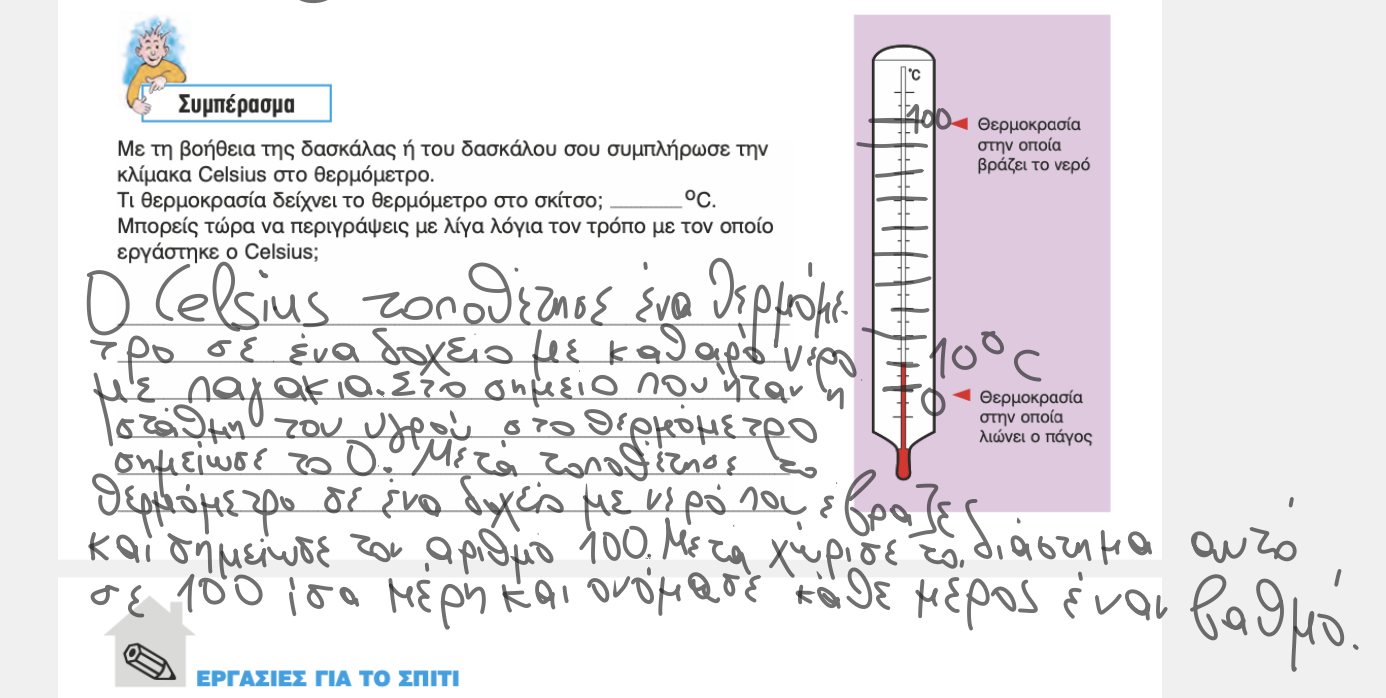 Συμπέρασμα
Με τη βοήθεια της δασκάλας ή του δασκάλου σου συμπλήρωσε την
κλίμακα Celsius στο θερμόμετρο.
Τι θερμοκρασία δείχνει το θερμόμετρο στο σκίτσο; _______ °C.
Μπορείς τώρα να περιγράψεις με λίγα λόγια τον τρόπο με τον οποίο
εργάστηκε ο Celsius;
Ο Celsius τοποθέτησε ένα θερμόμε-
τρο σε ένα δοχείο με καθαρό νερό
με παγάκια. Στο σημείο που ήταν η
στάθμη του υγρού στο θερμόμετρο
σημείωσε το 0. Μετά τοποθέτησε το
θερμόμετρο σε ένα δοχείο με νερό που έβραζε
και σημείωσε τον αριθμό 100. Μετά χώρισε το διάστημα αυτό
σε 100 ίσα μέρη και ονόμασε κάθε μέρος έναν βαθμό.
°C
100
Θερμοκρασία
στην οποία
βράζει το νερό
10°C
0
Θερμοκρασία
στην οποία
λιώνει ο πάγος
ΕΡΓΑΣΙΕΣ ΓΙΑ ΤΟ ΣΠΙΤΙ